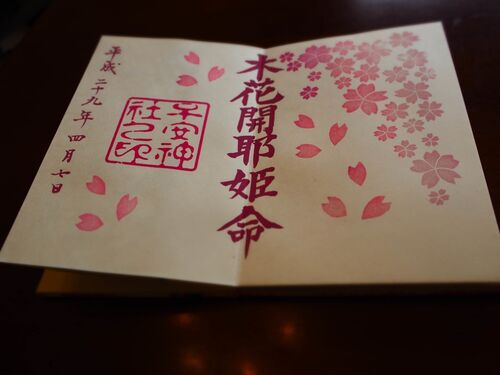 木花開耶姫命
子安神
社之印
平成二十九年四月七日